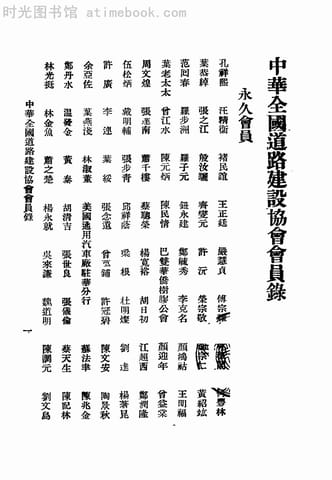 时光图书馆 - atimebook.com
中華全國道路建設協會會員錄
永久會員
孔祥熙 汪精衞 褚民誼 王正廷 嚴慧貞 傅宗耀 何豐林
葉恭綽 張之江 殷汝驪 齊燮元 許沅 榮宗敬 黃紹竑
范回春 羅步洲 羅子元 鈕永建 鄭毓秀 李克名 顏鴻祜 王明福
葉老太太 曾江水 陳元炳 陳民情 巴雙華僑樹膠公會 顏迎安 曾益棠
周文煌 張連南 蕭千樓 蔡聰榮 楊寬裕 胡日初 江趙西 鄭潤隆
伍松炳 戴明輔 張步青 邱祥蔭 梁根 杜明燦 劉逹 楊著昆
許廣 李連 葉綏 張念遺 曾文鋪 許冠碧 陳文安 陶景秋
余亞佐 葉燕淺 林淑董 美國通用汽車廠駐華分行 蔡法聿 陳兆金
鄭丹水 溫發金 黃泰 胡清吉 張世良 張儀倫 蔡天生 陳記林
林光挺 林金魚 蕭之楚 楊永就 吳來謙 魏道明 陳調元 劉文島
中華全國道路建設協會會員錄
一